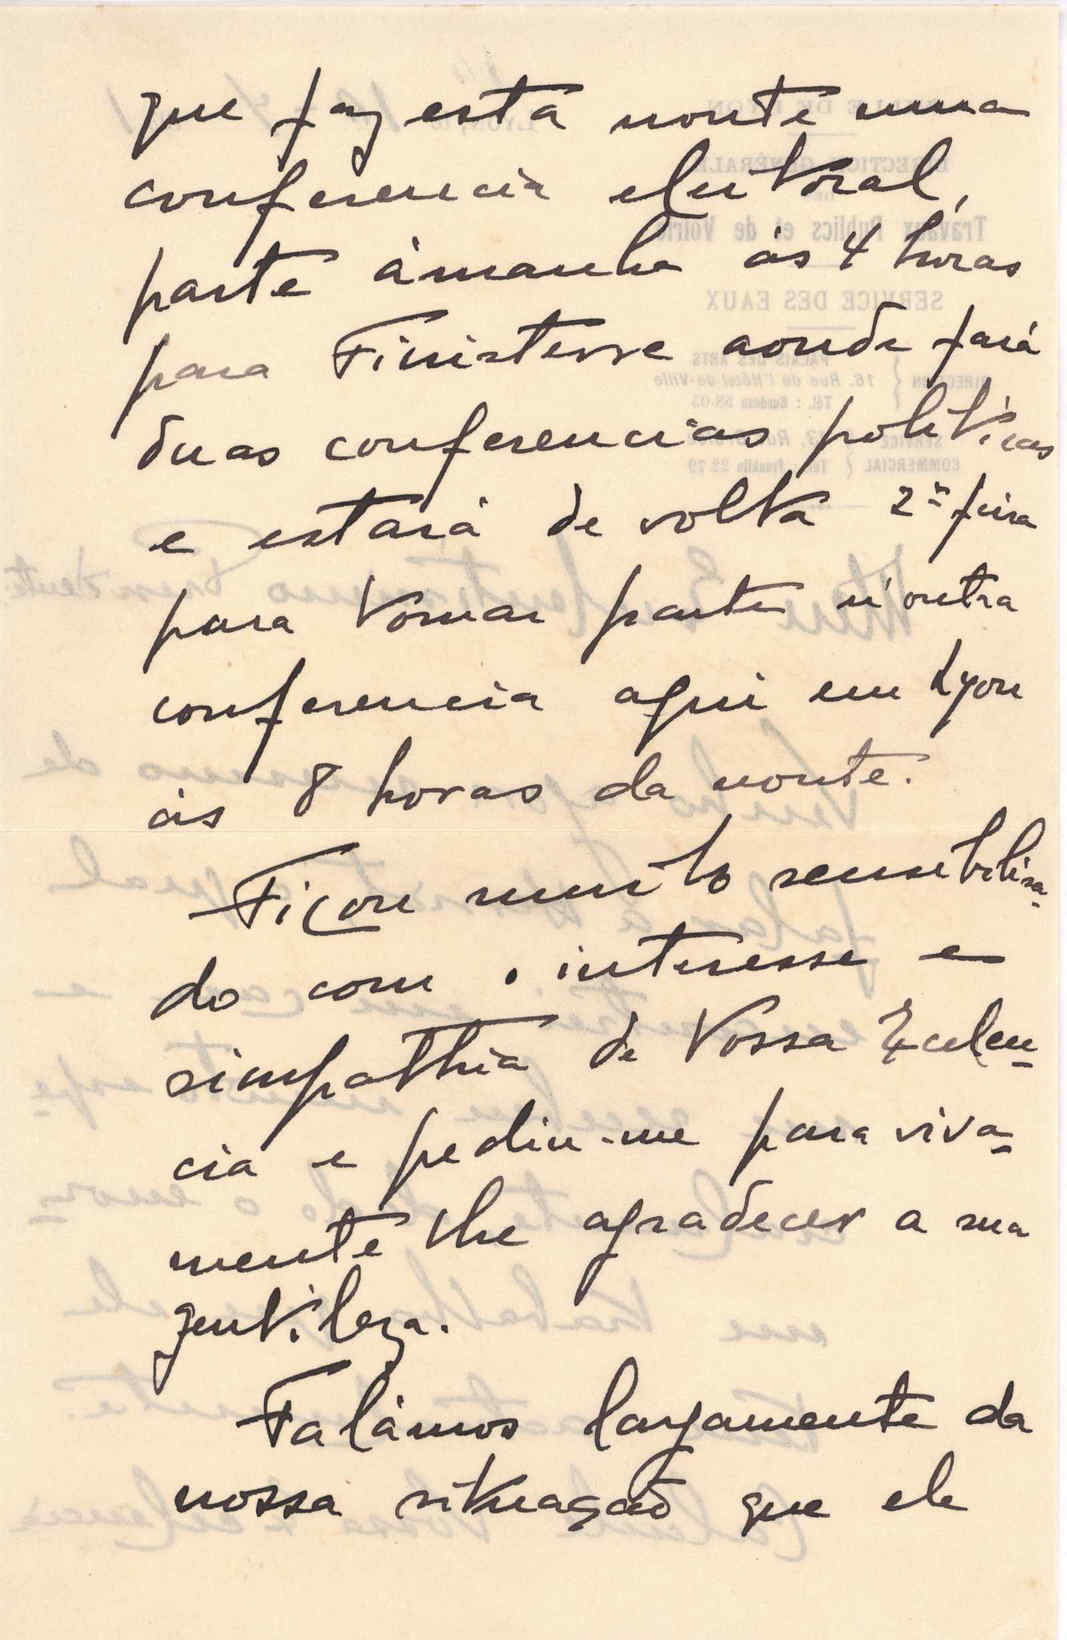 que faz esta noute uma
conferencia eleitoral,
parte ámanha ás 4 horas
para Finisterre aonde fará
duas conferencias politicas
e estará de volta 2ª feira
para tomar parte n'outra
conferencia aqui em Lyon
ás 8 horas da noute.
Ficou muito sensibilisa-
do com o interesse e
simpathia de Vossa Excelen-
cia e pediu-me para viva-
mente lhe agradecer a sua
gentileza.
Falámos largamente da
nossa situação que ele